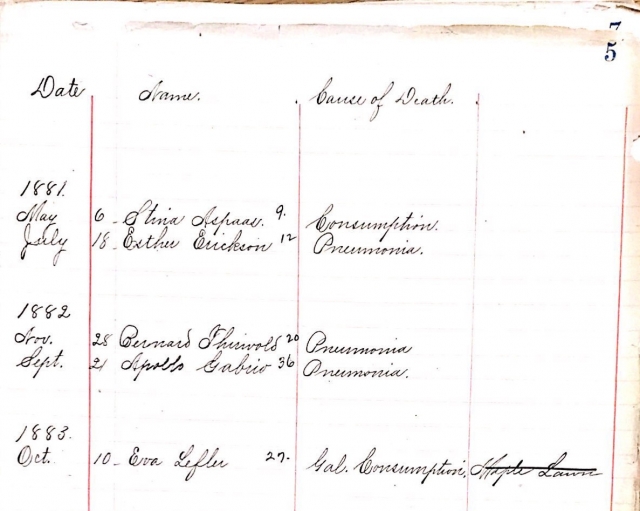 7
5
Date Name. Cause of Death.
1881.
May 6 - Stina Aspaas. 9. Consumption.
July 18 - Esther Erickson 12 Pneumonia.
1882
Nov. 28 Bernard Thirwold 20 Pneumonia
Sept. 21 Apolls Gabrio 36 Pneumonia.
1883.
Oct. 10 - Eva Lefler 27. Gal. Consumption. Maple Lawn